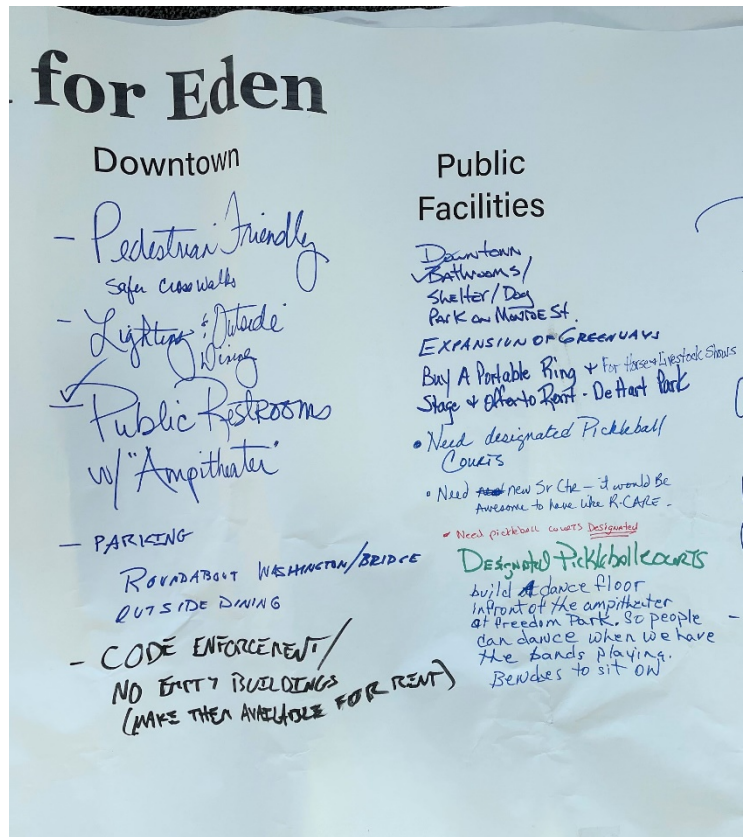 for Eden
Downtown
- Pedestrian Friendly
Safer Crosswalks
- Lighting & Outside
Dining
- Public Restrooms
w/ "Ampitheater"
- PARKING
ROUNDABOUT WASHINGTON/BRIDGE
OUTSIDE DINING
- CODE ENFORCEMENT/
NO EMPTY BUILDINGS
(MAKE THEM AVAILABLE FOR RENT)
Public
Facilities
Downtown
Bathrooms/
Shelter/Dog
Park on Monroe St.
EXPANSION OF GREENWAYS
Buy A Portable Ring & For Horse & Livestock Shows
Stage & Offer to Rent - DeHart Park
• Need designated Pickleball
Courts
• Need new Sr Ctr - it would Be
Awesome to have like R-CARE.
• Need pickleball courts Designated
Designated Pickleball courts
build A dance floor
infront of the ampitheater
at freedom Park. So people
can dance when we have
the bands playing.
Benches to sit on